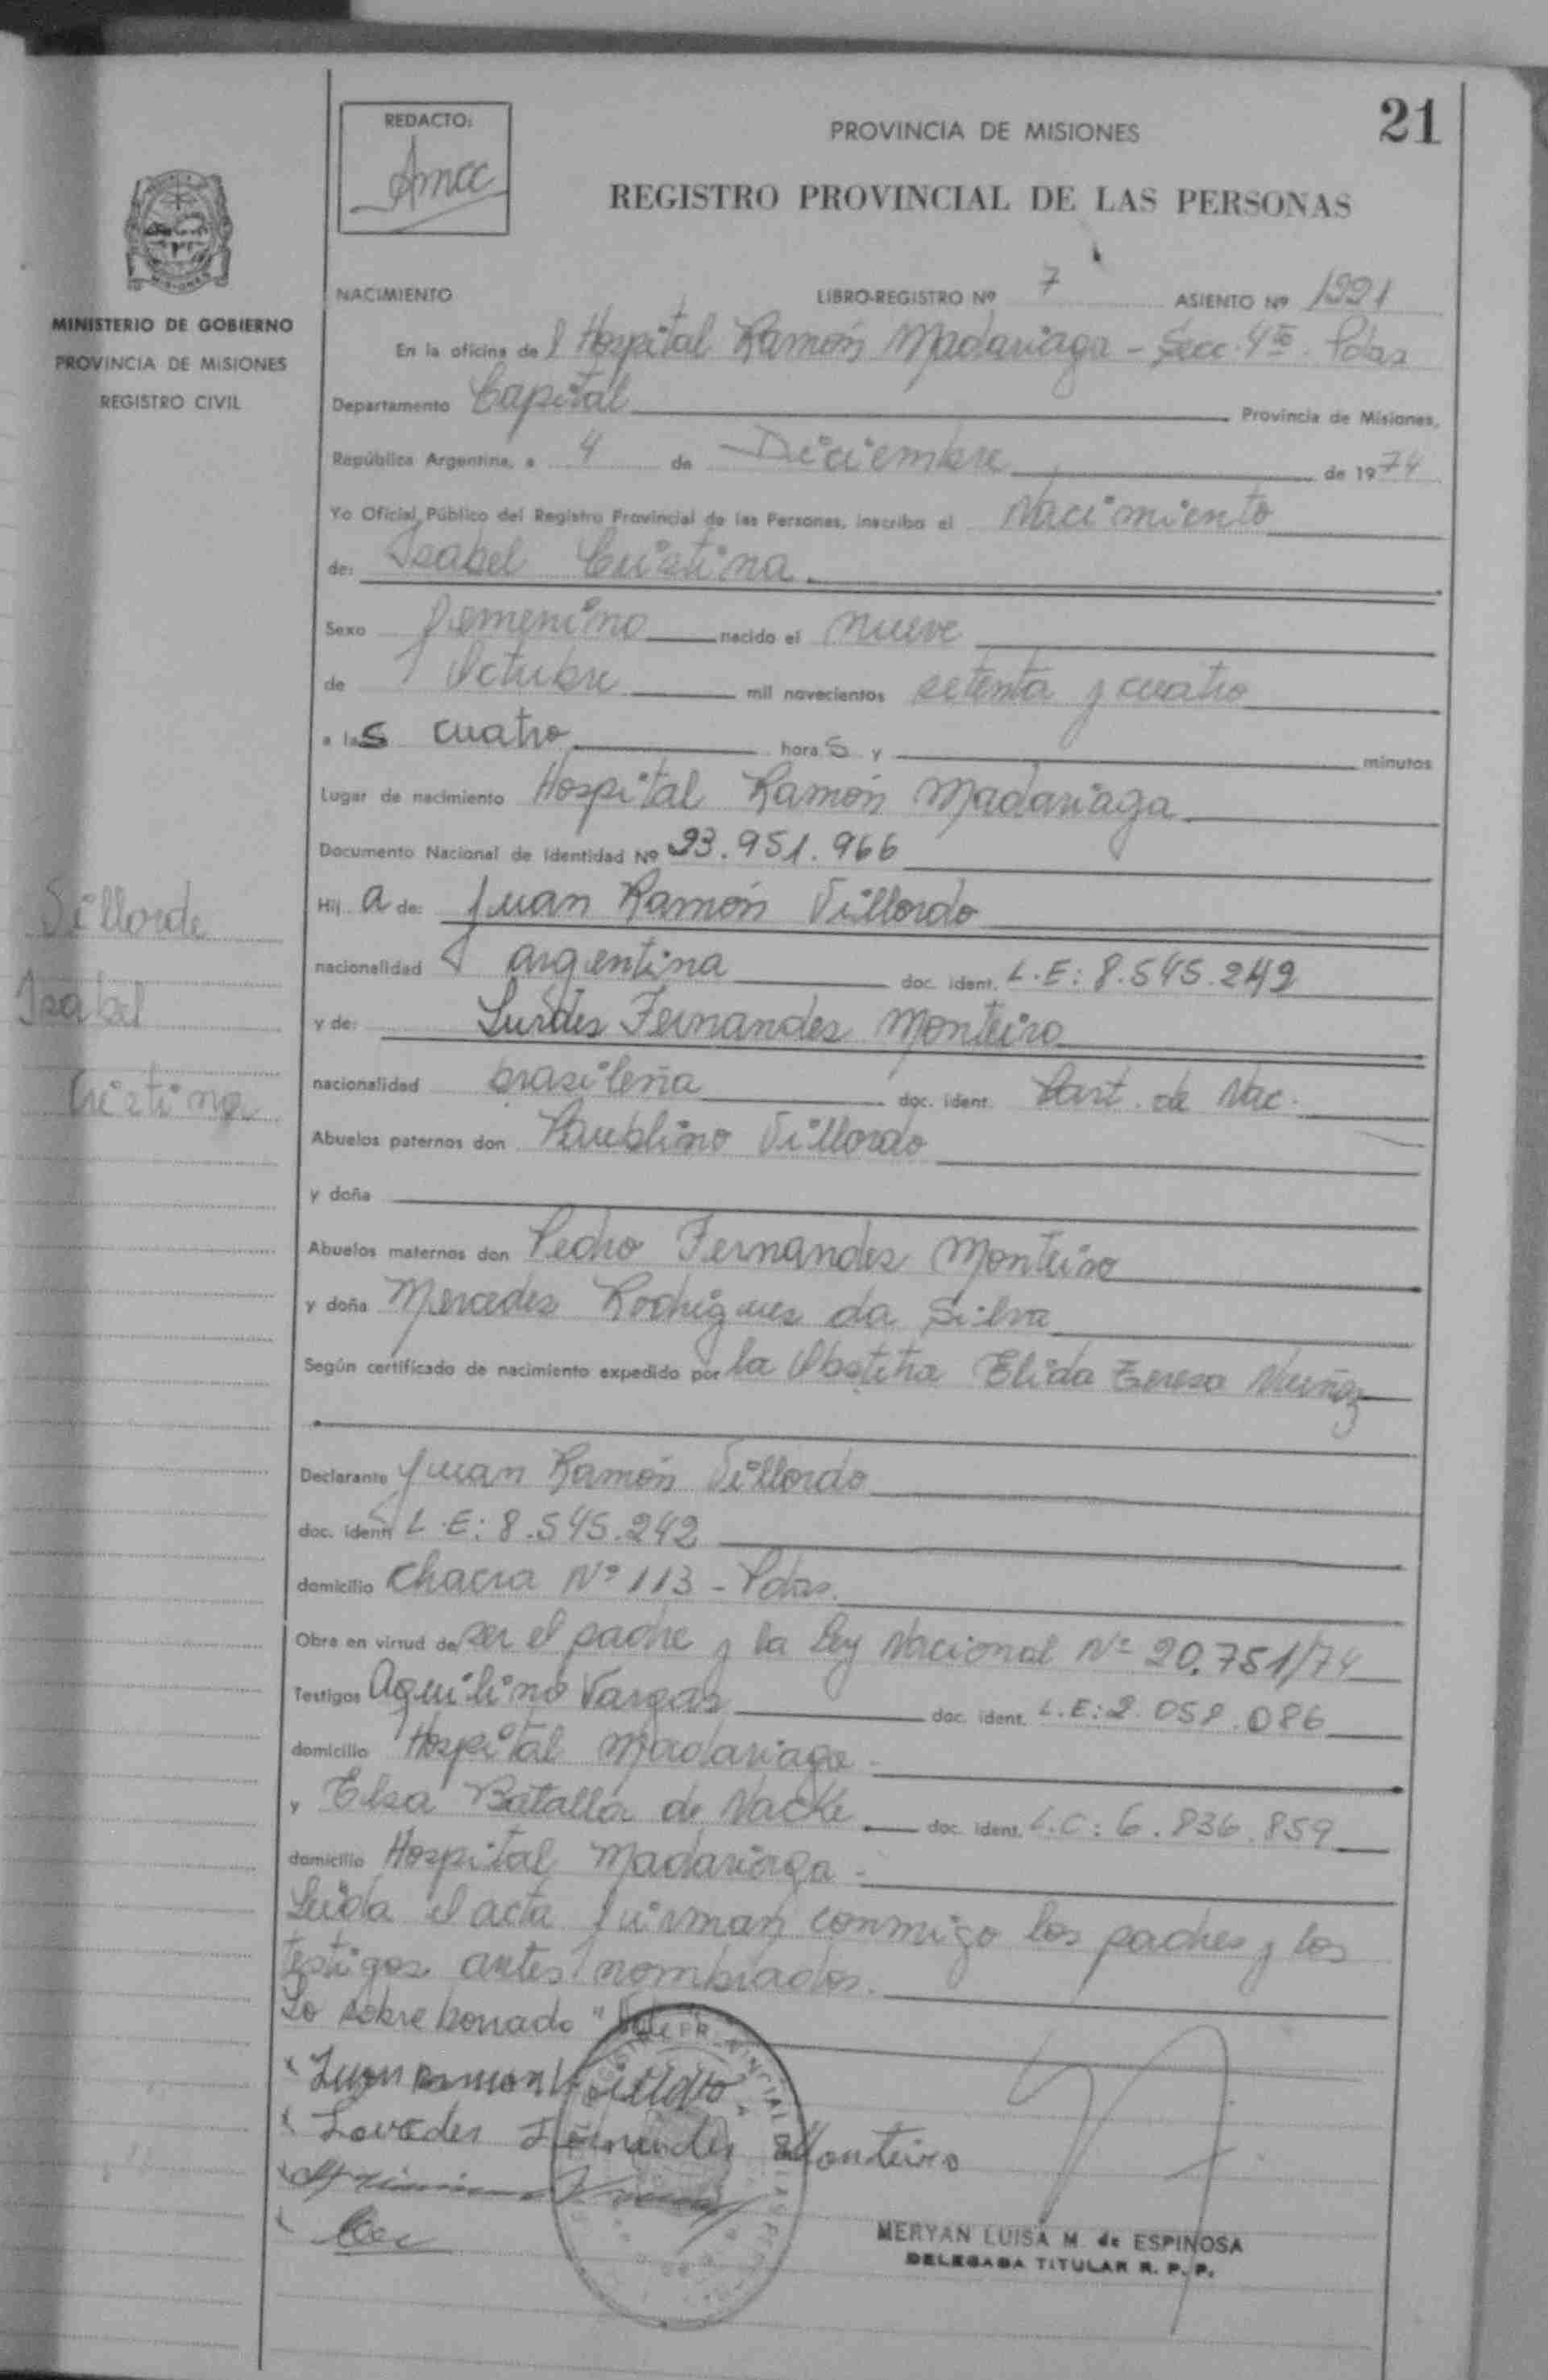 21
REDACTO:
PROVINCIA DE MISIONES
REGISTRO PROVINCIAL DE LAS PERSONAS
MISIONES
MINISTERIO DE GOBIERNO
PROVINCIA DE MISIONES
REGISTRO CIVIL
NACIMIENTO LIBRO-REGISTRO Nº 7 ASIENTO Nº 1991
En la oficina del Hospital Ramón Madariaga - Secc. 4ta. Pdas
Departamento Capital Provincia de Misiones,
República Argentina, a 4 de Diciembre de 1974
Yo Oficial Público del Registro Provincial de las Personas, inscribo el Nacimiento
de: Isabel Cristina
Sexo femenino nacido el nueve
de Octubre mil novecientos setenta y cuatro
a las cuatro horas y minutos
Lugar de nacimiento Hospital Ramón Madariaga
Documento Nacional de Identidad Nº 23.951.966
Hija de: Juan Ramón Villordo
nacionalidad argentina doc. ident. L.E: 8.545.242
y de: Lurdes Fernandes Monteiro
nacionalidad brasileña doc. ident. Part. de Nac.
Villorde
Isabel
Cristina
Abuelos paternos don Villordo
y doña
Abuelos maternos don Pedro Fernandes Monteiro
y doña Mercedes Rodrigues da Silva
Según certificado de nacimiento expedido por la Obstetra Elida Teresa Nuñez
Declarante Juan Ramón Villordo
doc. ident. L.E: 8.545.242
domicilio Chacra Nº 113 - Pdas.
Obra en virtud de ser el padre y la Ley Nacional Nº 20.751/74
Testigos Aquilino Vargas doc. ident. L.E: 2.058.086
domicilio Hospital Madariaga
y Elsa Batalla de Nacke doc. ident. L.C: 6.836.859
domicilio Hospital Madariaga
Leida el acta firman conmigo los padres y los
testigos antes nombrados.
Lo sobre borrado "Vale"
Juan Ramon Villordo
Lovrdes Fernandes Monteiro
MERYAN LUISA M. de ESPINOSA
DELEGADA TITULAR R. P. P.